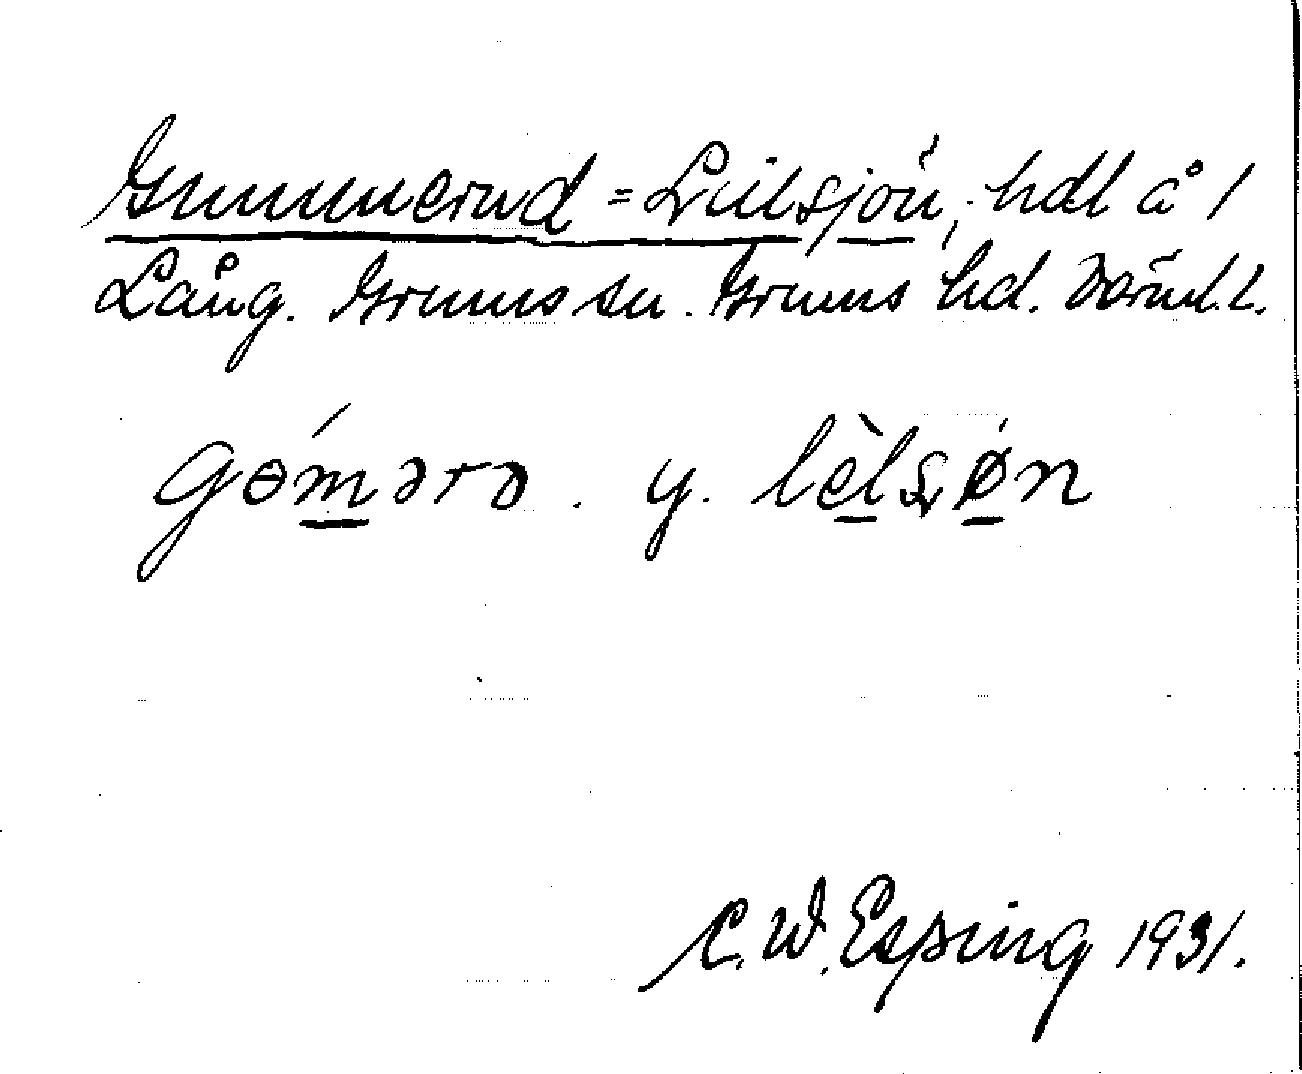 Gummerud = Lillsjön, hdl å 1
Lång. Grums sn. Grums hd. Värml. L.
gɵ́mərə. y. lèlsøn
C. W. Esping 1931.